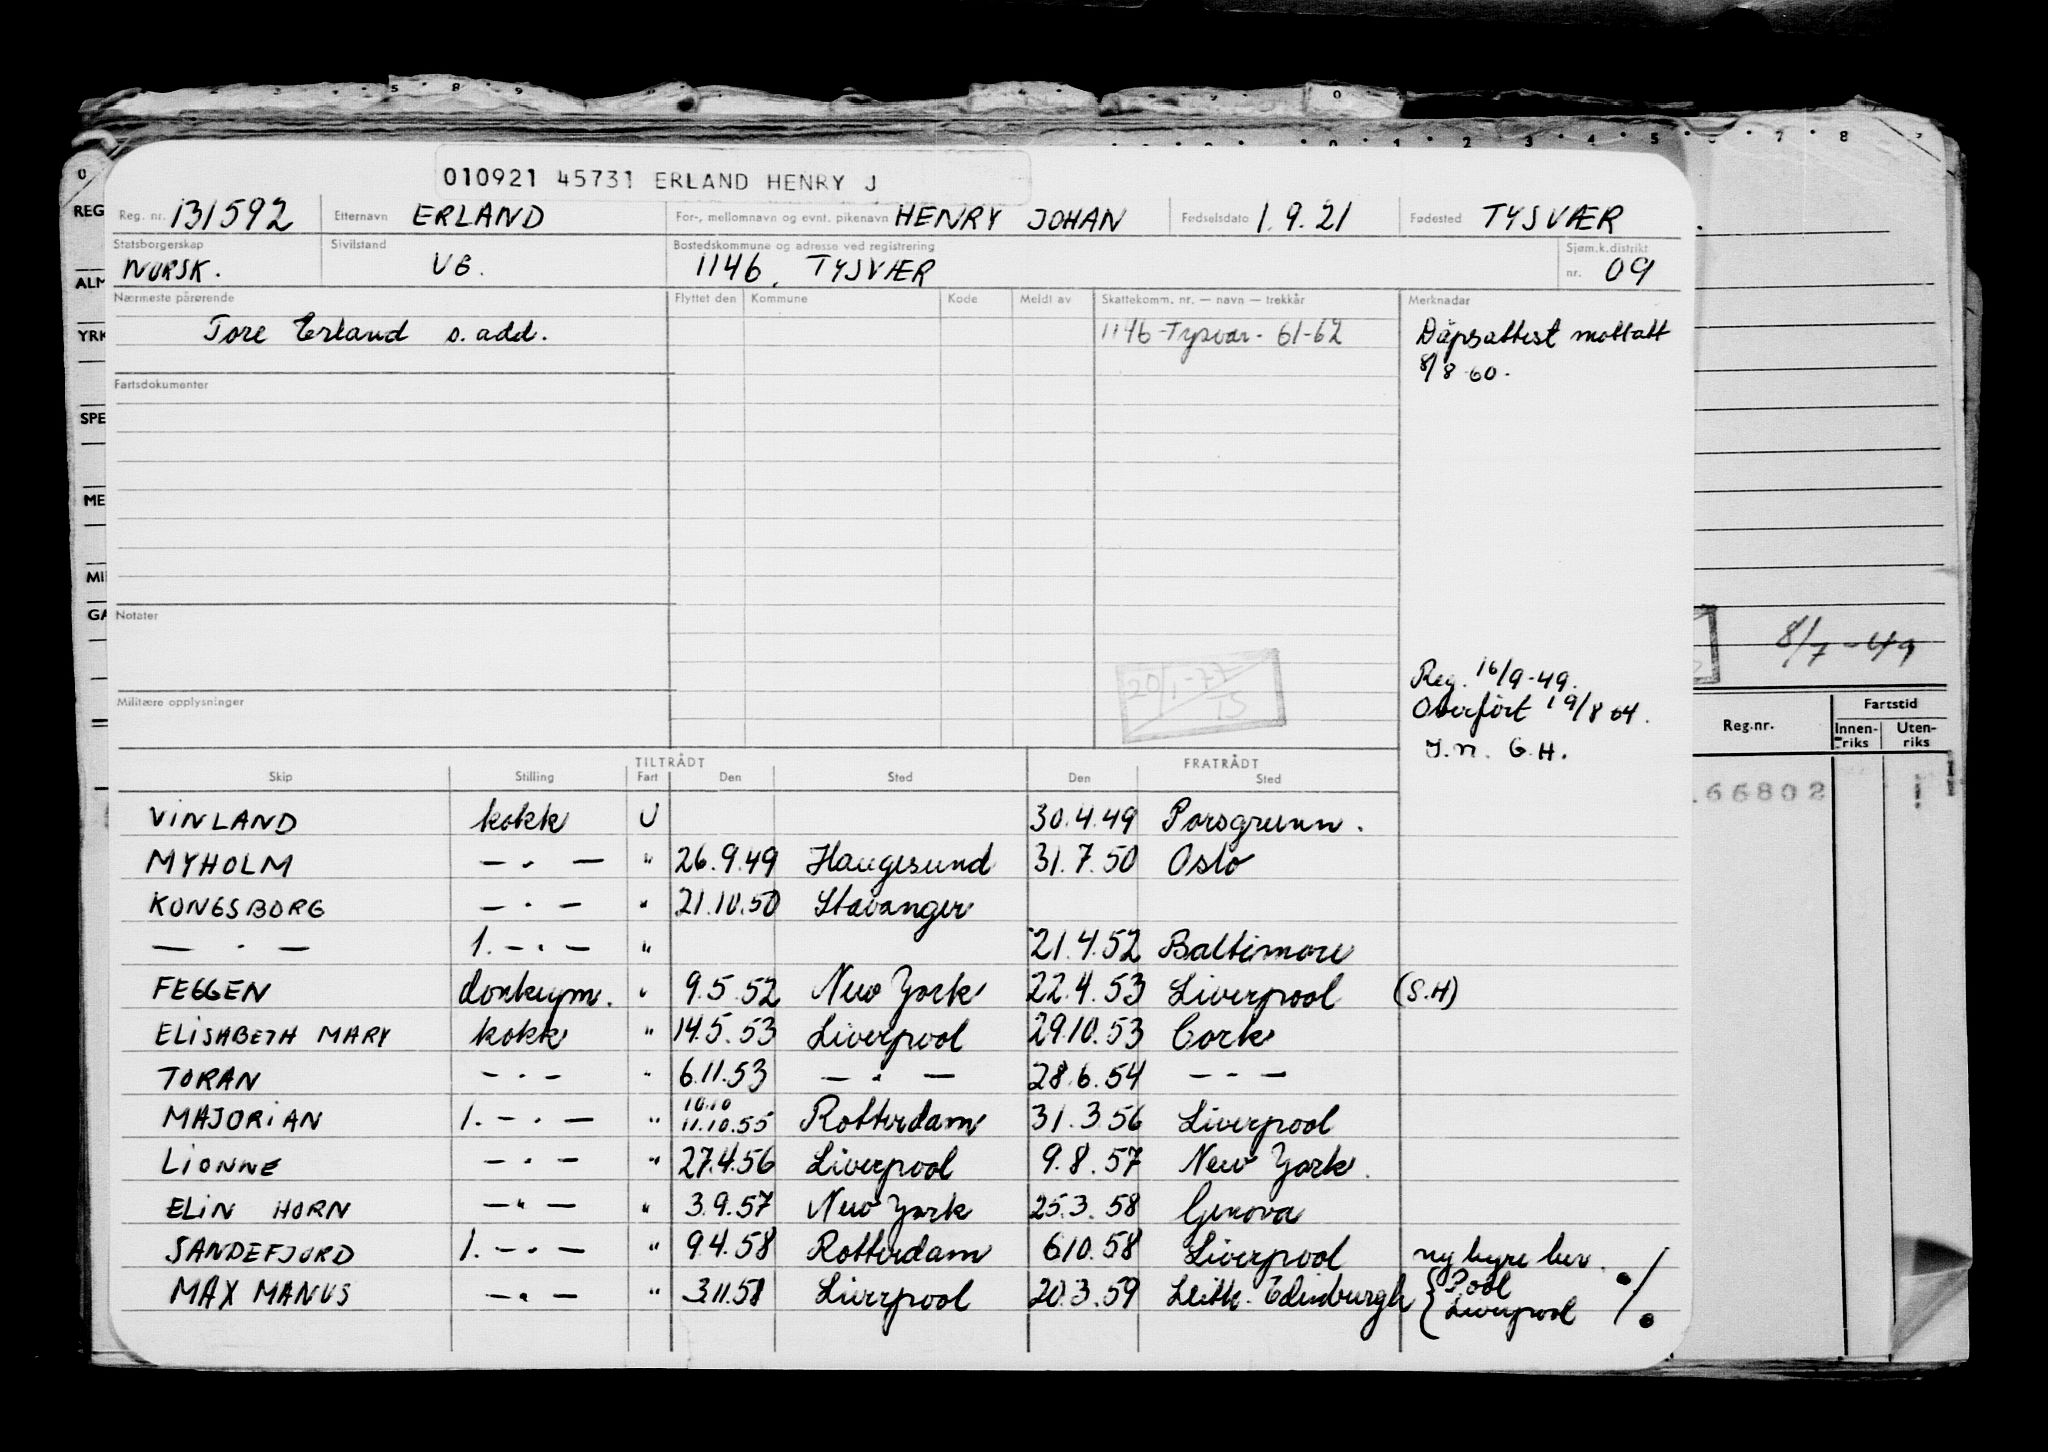 010921 45731 ERLAND HENRY J
Reg. nr. 131592 Etternavn ERLAND For-, mellomnavn og evnt. pikenavn HENRY JOHAN Fødselsdato 1.9.21 Fødested TYSVÆR
Statsborgerskap NORSK. Sivilstand UG. Bostedskommune og adresse ved registrering 1146, TYSVÆR Sjøm.k.distrikt nr. 09
Nærmeste pårørende Flyttet den Kommune Kode Meldt av Skattekomm. nr. — navn — trekkår Merknadar
Tore Erland s. add. 1146-Tysvær- 61-62 Dåpsattest mottatt
8/8-60.
Fartsdokumenter
Notater
Militære opplysninger
20/1-77
Reg. 16/9-49.
Overført 19/8 64.
J.n. G.H.
TILTRÅDT FRATRÅDT
Skip Stilling Fart Den Sted Den Sted
VINLAND kokk U 30.4.49 Porsgrunn.
MYHOLM — . — " 26.9.49 Haugesund 31.7.50 Oslo
KONGSBORG — . — " 21.10.50 Stavanger
— . — 1. — . — " 21.4.52 Baltimore
FEGGEN donkeym. " 9.5.52 New York 22.4.53 Liverpool (S.H)
ELISABETH MARY kokk " 14.5.53 Liverpool 29.10.53 Cork
TORAN — . — " 6.11.53 — . — 28.6.54 — . —
MAJORIAN 1. — . — " 10.10 11.10.55 Rotterdam 31.3.56 Liverpool
LIONNE — . — " 27.4.56 Liverpool 9.8.57 New York.
ELIN HORN — " — " 3.9.57 New York 25.3.58 Genova
SANDEFJORD 1. — . — " 9.4.58 Rotterdam 6.10.58 Liverpool ny hyre lev.
MAX MANUS — . — " 3.11.58 Liverpool 20.3.59 Leith-Edinburgh { Pool
Liverpool
REG
ALM
YRK
SPE
ME
MI
GA
0 1 2 3 4 5 6 7 8
8/7-49
Reg.nr. Fartstid
Innenriks Utenriks
66802